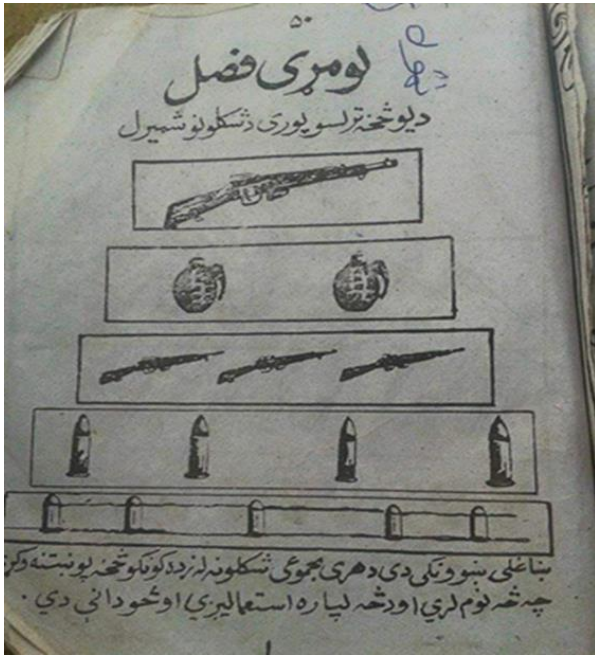 ۵۰
لومړی فصل
د یو څخه تر لسو پوری د شکلونو شمیرل
ښاغلی ښوونکی دی د هری مجموعی شکلونه له زده کونکو څخه پوښتنه وکړ
چه څه نوم لري او د څه لپاره استعمالیږي او څو داني دي .